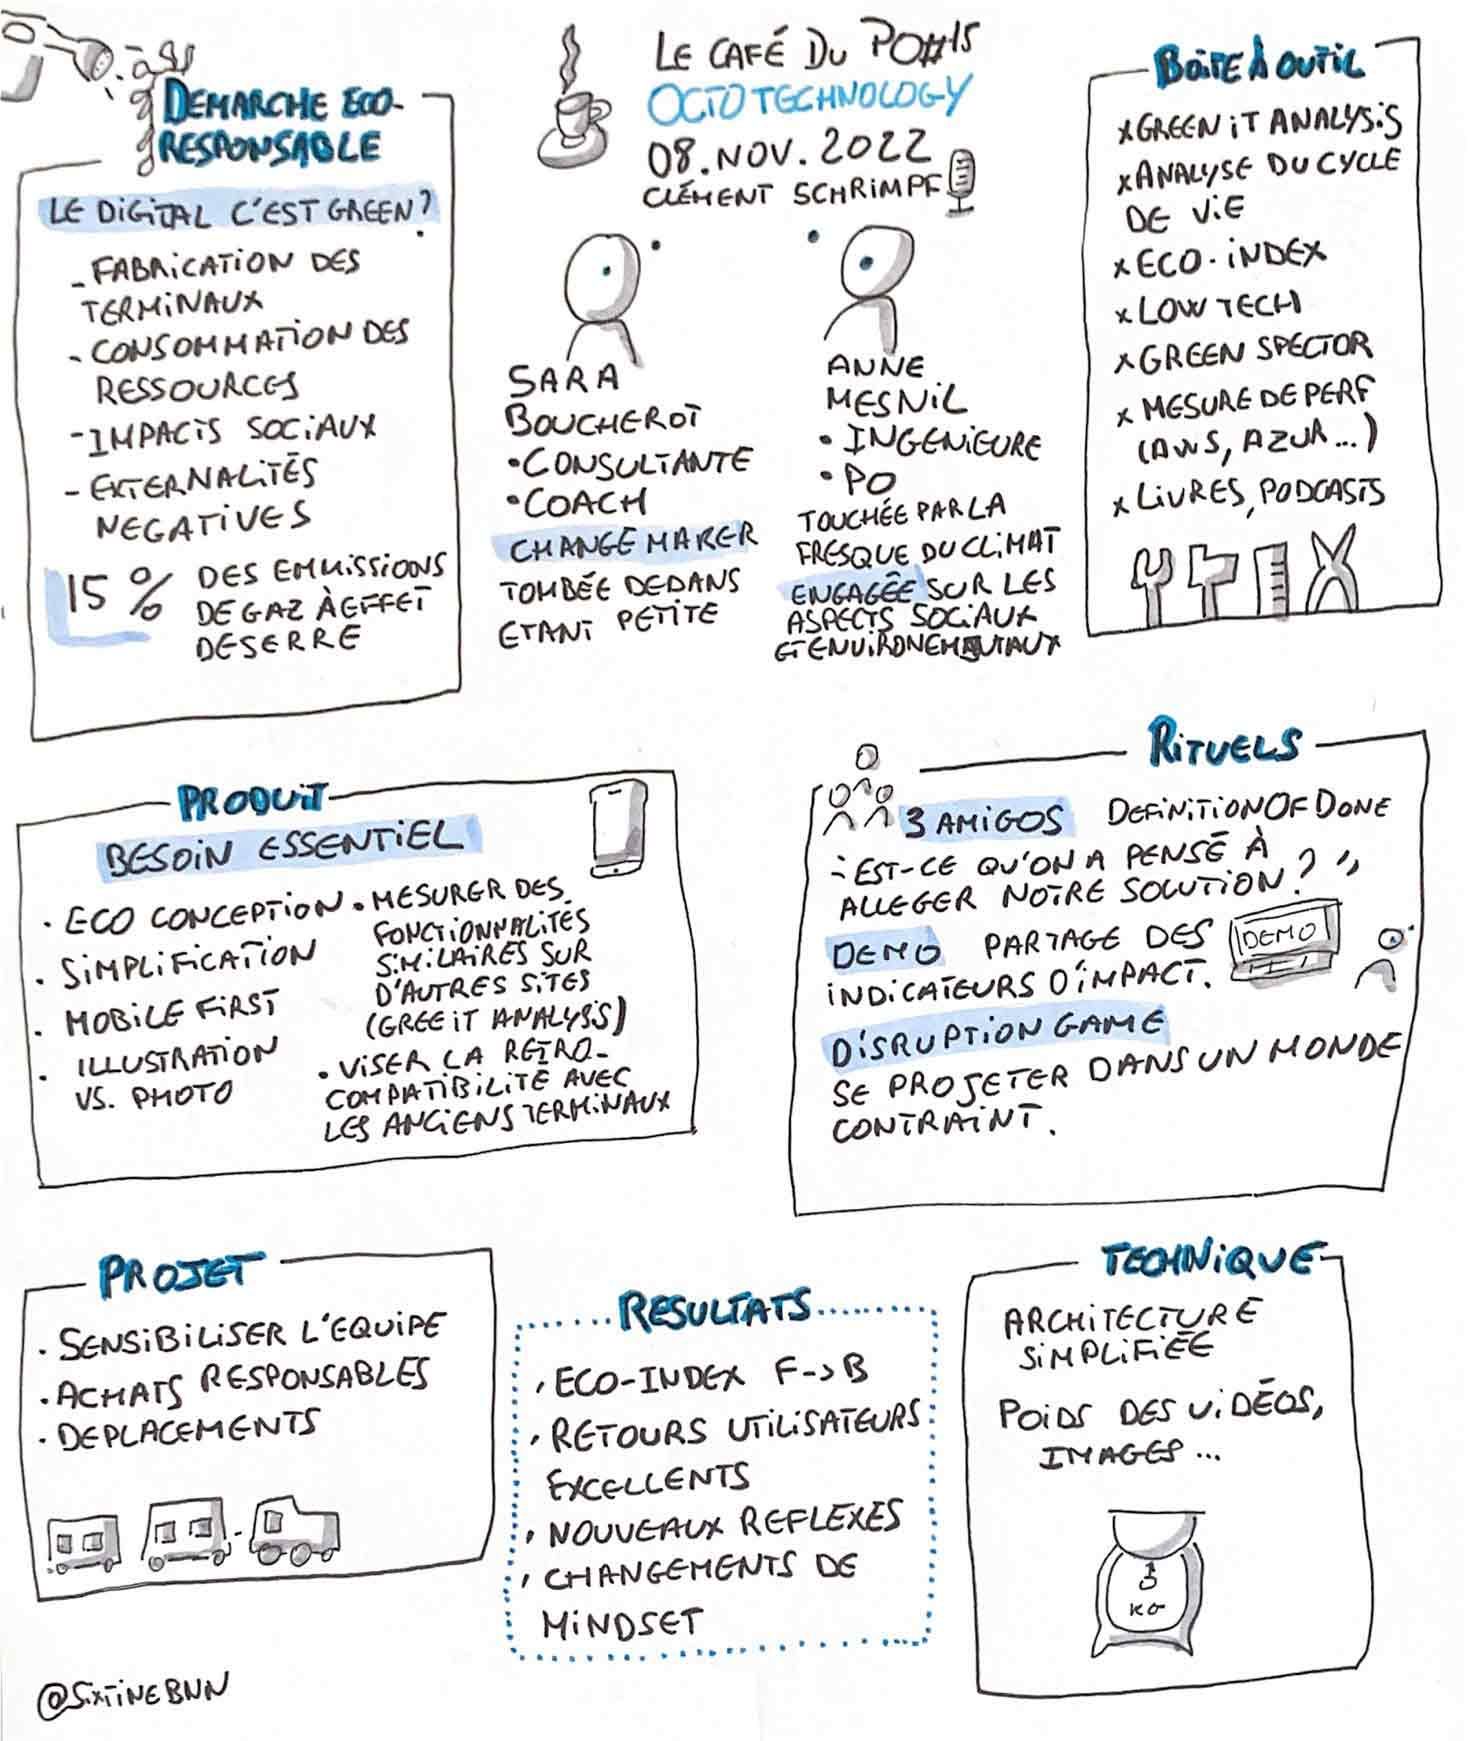 LE CAFÉ DU PO#15
OCTO TECHNOLOGY
08.NOV.2022
CLÉMENT SCHRIMPF
DEMARCHE ECO-
RESPONSABLE
LE DIGITAL C'EST GREEN?
- FABRICATION DES
TERMINAUX
- CONSOMMATION DES
RESSOURCES
- IMPACTS SOCIAUX
- EXTERNALITÉS
NEGATIVES
15 % DES EMMISSIONS
DE GAZ À EFFET
DE SERRE
SARA
BOUCHEROT
• CONSULTANTE
• COACH
CHANGE MAKER
TOMBÉE DEDANS
ETANT PETITE
ANNE
MESNIL
• INGENIEURE
• PO
TOUCHÉE PAR LA
FRESQUE DU CLIMAT
ENGAGÉE SUR LES
ASPECTS SOCIAUX
ET ENVIRONEMENTAUX
BOITE À OUTIL
x GREEN IT ANALYSIS
x ANALYSE DU CYCLE
DE VIE
x ECO-INDEX
x LOW TECH
x GREEN SPECTOR
x MESURE DE PERF
(AWS, AZUR...)
x LIVRES, PODCASTS
PRODUIT
BESOIN ESSENTIEL
• ECO CONCEPTION
• SIMPLIFICATION
• MOBILE FIRST
• ILLUSTRATION
VS. PHOTO
• MESURER DES
FONCTIONNALITÉS
SIMILAIRES SUR
D'AUTRES SITES
(GREE IT ANALYSIS)
• VISER LA RETRO-
COMPATIBILITÉ AVEC
LES ANCIENS TERMINAUX
RITUELS
3 AMIGOS DEFINITION OF DONE
"EST-CE QU'ON A PENSÉ À
ALLEGER NOTRE SOLUTION?"
DEMO PARTAGE DES
INDICATEURS D'IMPACT.
DEMO
DISRUPTION GAME
SE PROJETER DANS UN MONDE
CONTRAINT.
PROJET
• SENSIBILISER L'EQUIPE
• ACHATS RESPONSABLES
• DEPLACEMENTS
RESULTATS
, ECO-INDEX F->B
, RETOURS UTILISATEURS
EXCELLENTS
, NOUVEAUX REFLEXES
, CHANGEMENTS DE
MINDSET
TECHNIQUE
ARCHITECTURE
SIMPLIFIÉE
POIDS DES VIDÉOS,
IMAGES...
KG
@SIXTINEBNN